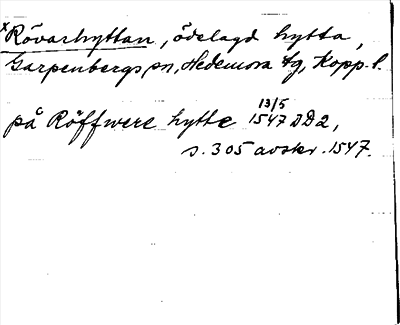 x Rövarhyttan, ödelagd hytta,
Garpenbergs sn, Hedemora tg, Kopp. l.
på Röffwere hytte 13/5 1547 DD2,
s. 305 avskr. 1547.